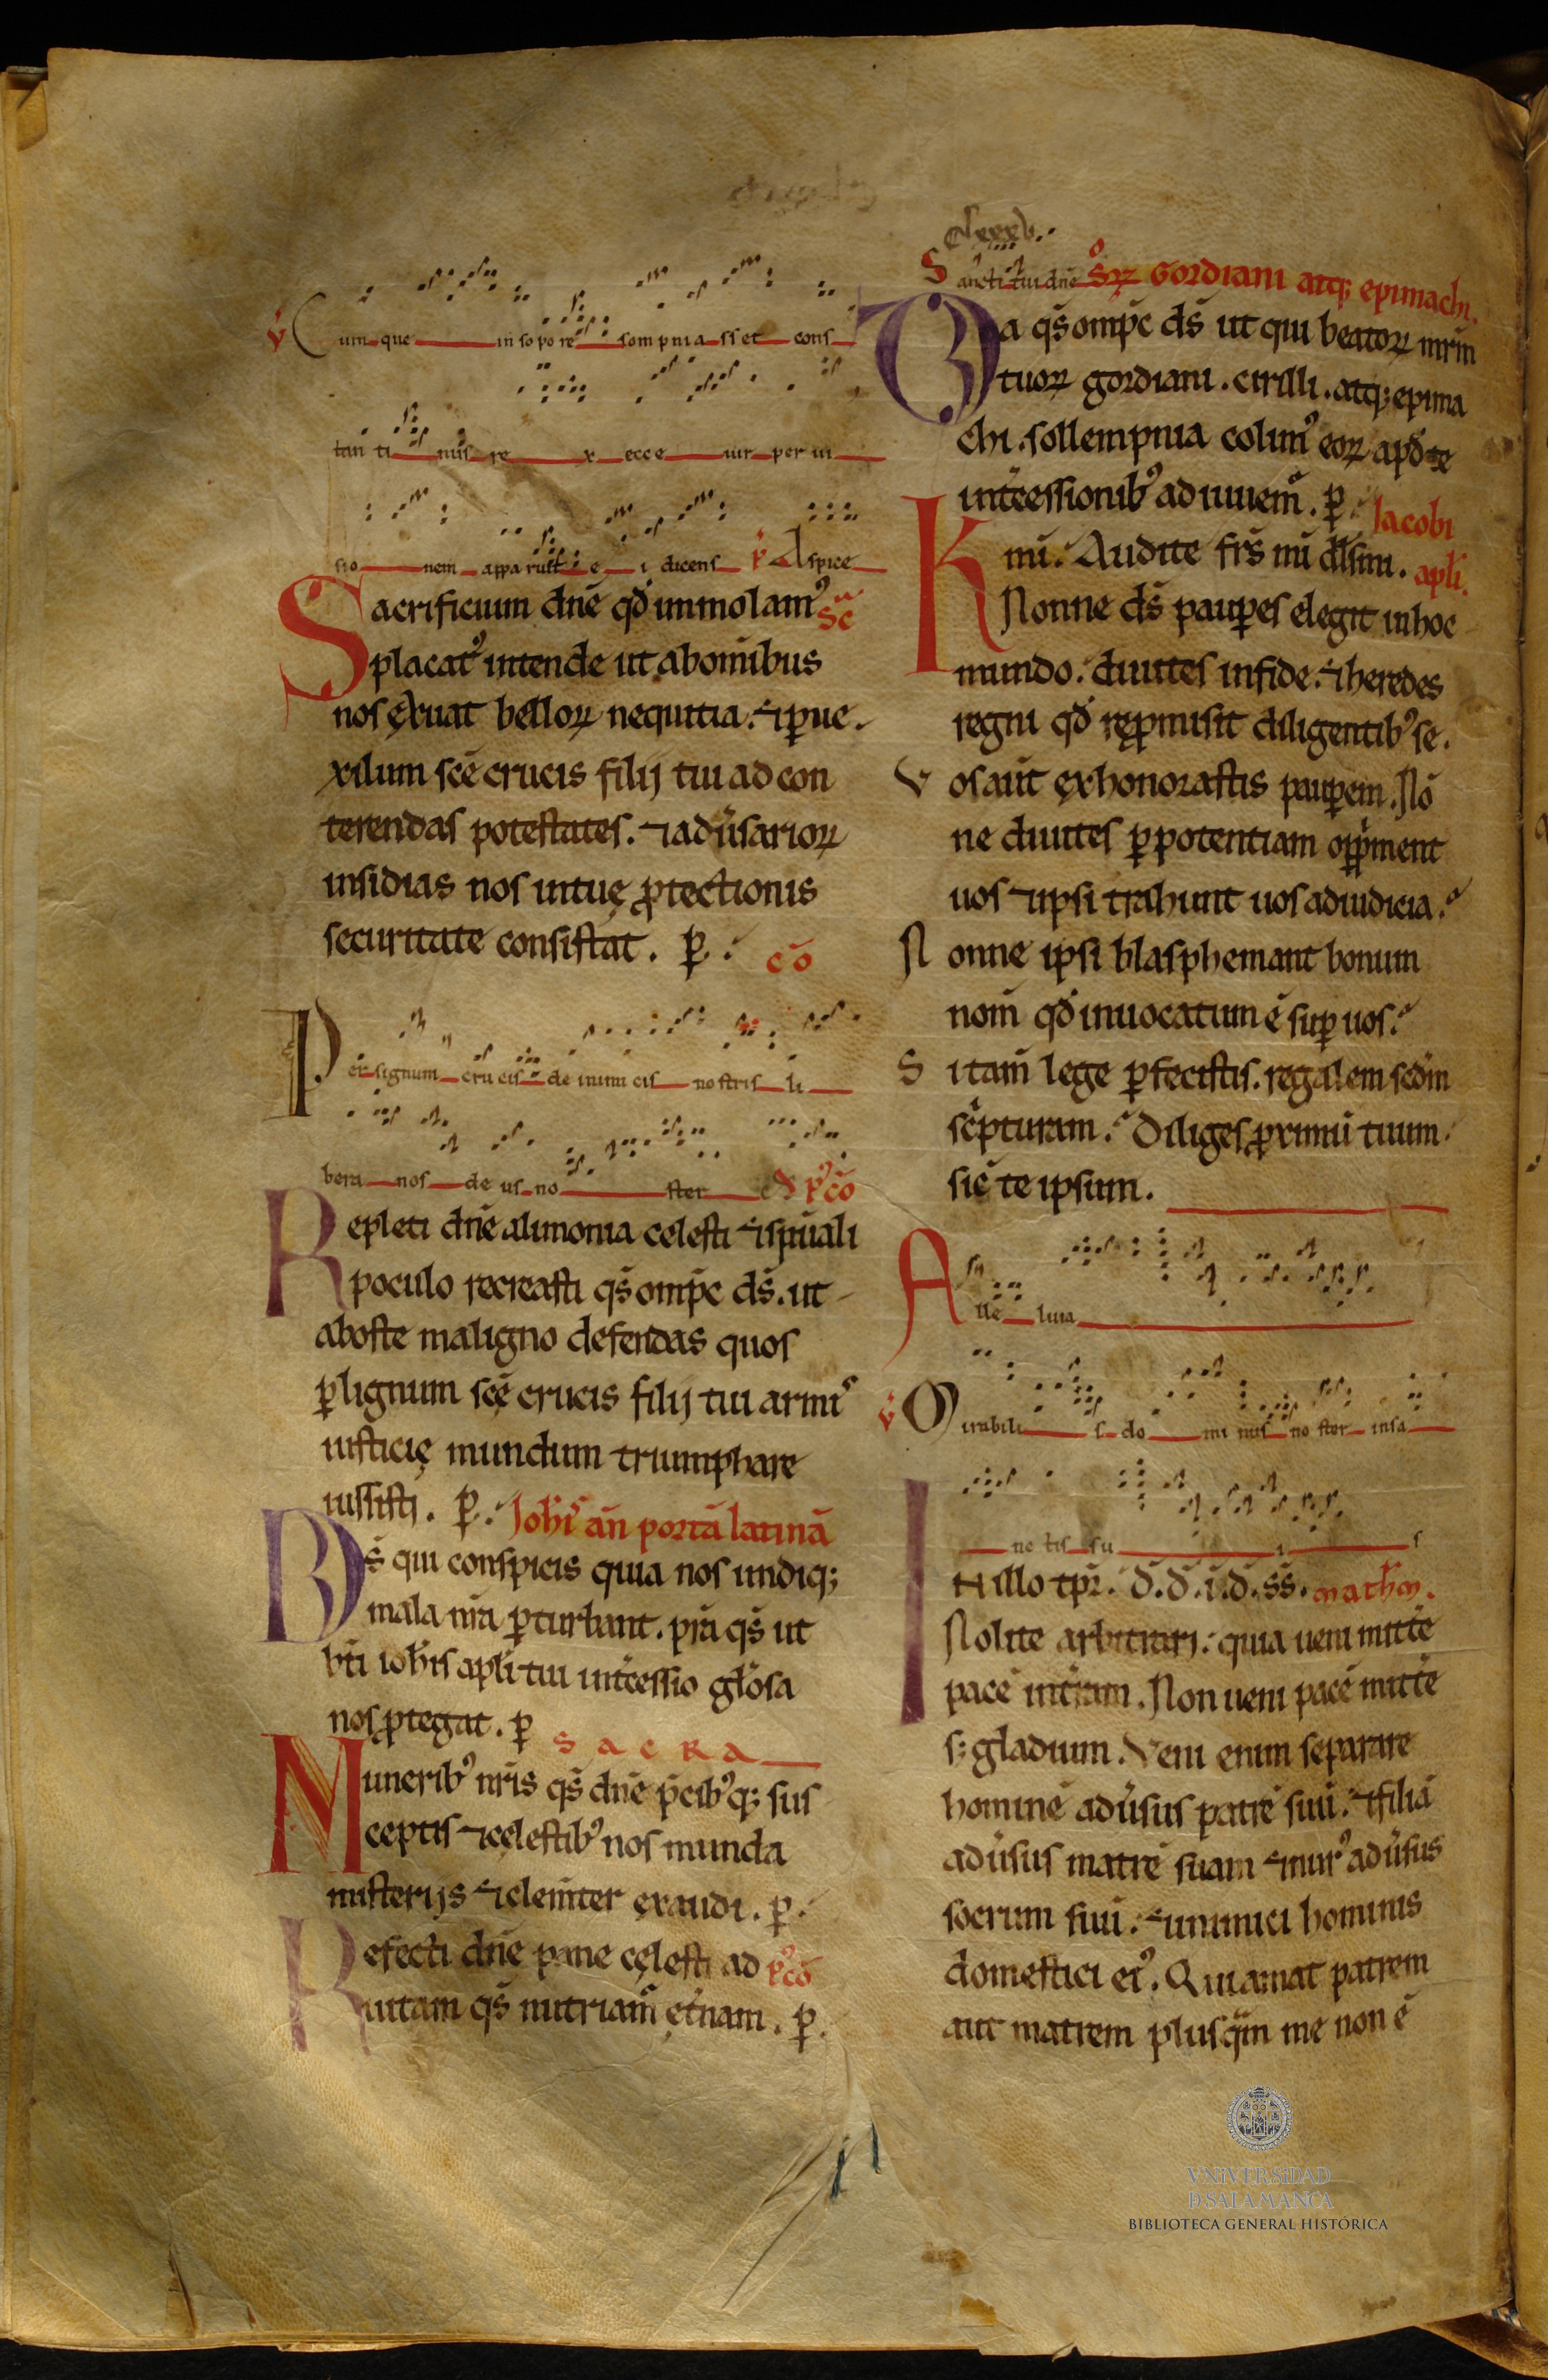 ℣ Cum que in so po re sompnia sset cons
tan ti nus re x ecce uir per ui
sio nem apparuit e i dicens ℟ Aspice
Sacrificium dn̄e qđ immolam⁹ Sēc
placat⁹ intende ut ab om̄ibus
nos ęxuat belloꝝ nequitia. ⁊ ꝑ ue
xilum scē crucis filij tui ad con
terendas potestates. ⁊ aduūsarioꝝ
insidias nos in tuę ꝓtectionis
securitate consistat. ꝑ. cō
Per signum cru cis de inimi cis no stris li
bera nos de us no ster p⁹cō
Repleti dn̄e alimonia celesti ⁊ sp̄uali
poculo recreasti qs̄ omp̄c ds̄. ut
ab oste maligno defendas quos
ꝑ lignum scę̄ crucis filij tui armis
iusticię mundum triumphare
iussisti. ꝑ. Joh̄is an̄ portā latinā
Ds̄ qui conspicis quia nos undiqꝫ
mala nr̄a ꝑturbant. pr̄a qs̄ ut
bt̄i ioh̄is apl̄i tui int̄cessio gl̄osa
nos ꝓtegat. ꝑ Sacra
Munerib⁹ nr̄is qs̄ dn̄e p̄cib⁹qꝫ sus
ceptis ⁊ cęlestib⁹ nos munda
misterijs ⁊ clem̄ter ęxaudi. ꝑ.
Refecti dn̄e pane cęlesti ad p⁹cō
uitam qs̄ nutriam̄ et̄nam. ꝑ.
clxxxv.
Sancti tui dn̄e Gordiani atqꝫ epimachi.
Da qs̄ omp̄c ds̄ ut qui beatoꝝ mr̄m
tuoꝝ gordiani. cirilli. atqꝫ epima
chi. sollempnia colim⁹ eoꝝ apđ te
int̄cessionib⁹ adiuuem̄. ꝑ. Jacobi
Kmi. Audite frs̄ mi dl̄sim. apl̄i.
Nonne ds̄ pauꝑes elegit in hoc
mundo. diuites in fide. ⁊ heredes
regni qđ reꝓmisit diligentib⁹ se.
Vos aūt exhonorastis pauꝑem. Nō
ne diuites ꝑ potentiam opp̄ment
uos ⁊ ipsi trahunt uos ad iudicia.
Nonne ipsi blasphemant bonum
nom̄ qđ inuocatum ē suꝑ uos.
Si tam̄ lege ꝑfecistis. regalem scđm
sc̄pturam. Diliges ꝓximū tuum
sic̄ te ipsum.
Alle luia
℣ Mirabili s do mi nus no ster in sa
nc tis su i s
In illo tpr̄. đ.đ.i.đ.ss̄. math̄m.
Nolite arbitrari. quia ueni mitt̄e
pacē in t̄ram. Non ueni pacē mitt̄e
sꝫ gladium. Veni enim separare
hominē adūsus patrē suū. ⁊ filiā
adūsus matrē suam ⁊ nur⁹ adūsus
socrum suū. ⁊ inimici hominis
domestici ei⁹. Qui amat patrem
aut matrem plus qm̄ me non ē
VNiVERSiDAD
D SALAMANCA
BIBLIOTECA GENERAL HISTÓRICA